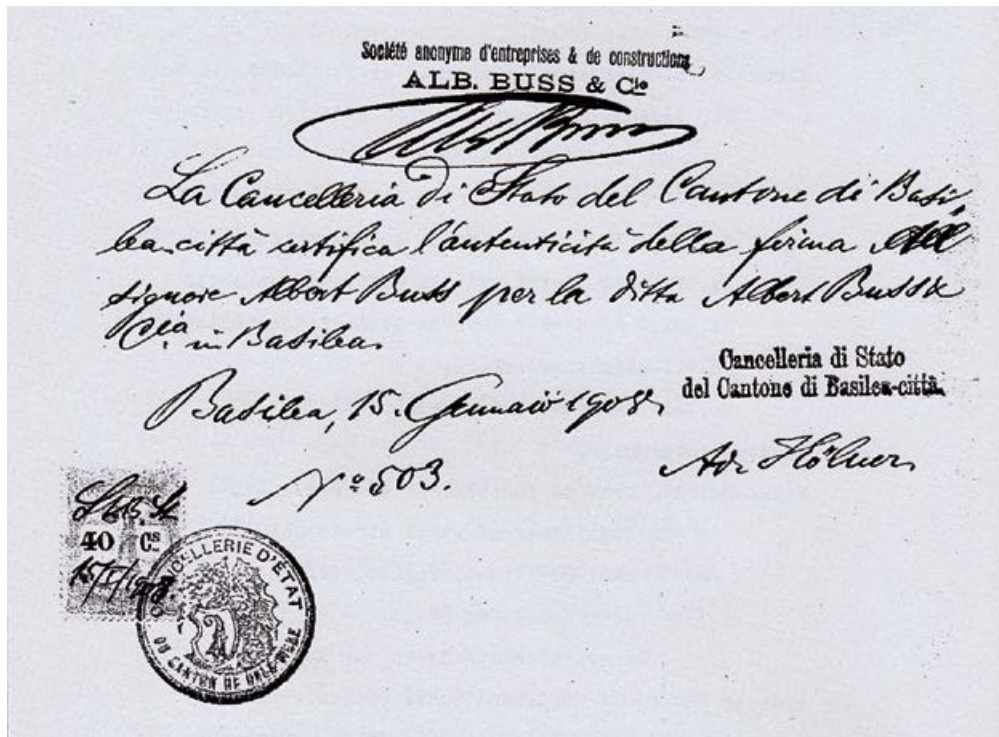 Société anonyme d'entreprises & de constructions
ALB. BUSS & Cie
La Cancelleria di Stato del Cantone di Basi-
lea-città certifica l'autenticità della firma del
signore Albert Buss per la ditta Albert Buss &
Cia. in Basilea.
Basilea, 15. Gennaio 1908.
Cancelleria di Stato
del Cantone di Basilea-città.
No 503.
40 Cs
15/I/1908.
CHANCELLERIE D'ETAT
DU CANTON DE BALE-VILLE